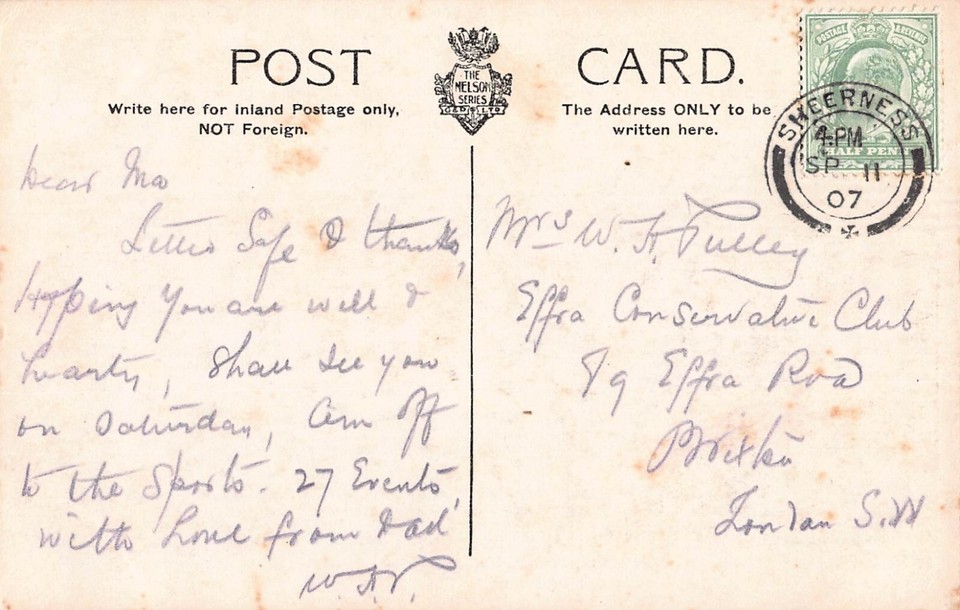 POST CARD.
THE
NELSON
SERIES
Write here for inland Postage only,
NOT Foreign.
The Address ONLY to be
written here.
POSTAGE & REVENUE
HALF PEN
SHEERNESS
4.PM
SP 11
07
Dear Ma
Letter Safe & thanks,
Hoping you are well &
hearty, Shall see you
on Saturday, am off
to the Sports. 27 Events,
with Love from Dad
W.A.P.
Mrs W. A. Pulley
Effra Conservative Club
79 Effra Road
Brixton
London S.W